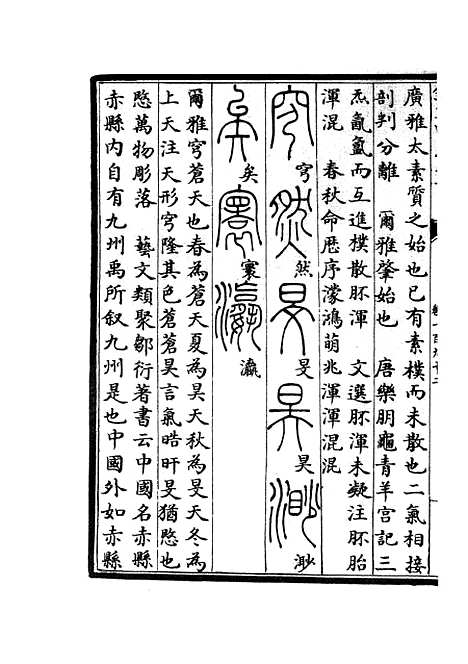 廣雅太素質之始也已有素樸而未散也二氣相接
剖判分離　爾雅肇始也　唐樂朋龜青羊宮記三
炁氤氳而互進樸散胚渾　文選胚渾未凝注胚胎
渾混　春秋命歷序濛鴻萌兆渾渾混混
穹　然　旻　昊　渺
矣　寰　瀛
爾雅穹蒼天也春為蒼天夏為昊天秋為旻天冬為
上天注天形穹隆其色蒼蒼昊言氣晧旰旻猶愍也
愍萬物彫落　藝文類聚鄒衍著書云中國名赤縣
赤縣内自有九州禹所叙九州是也中國外如赤縣